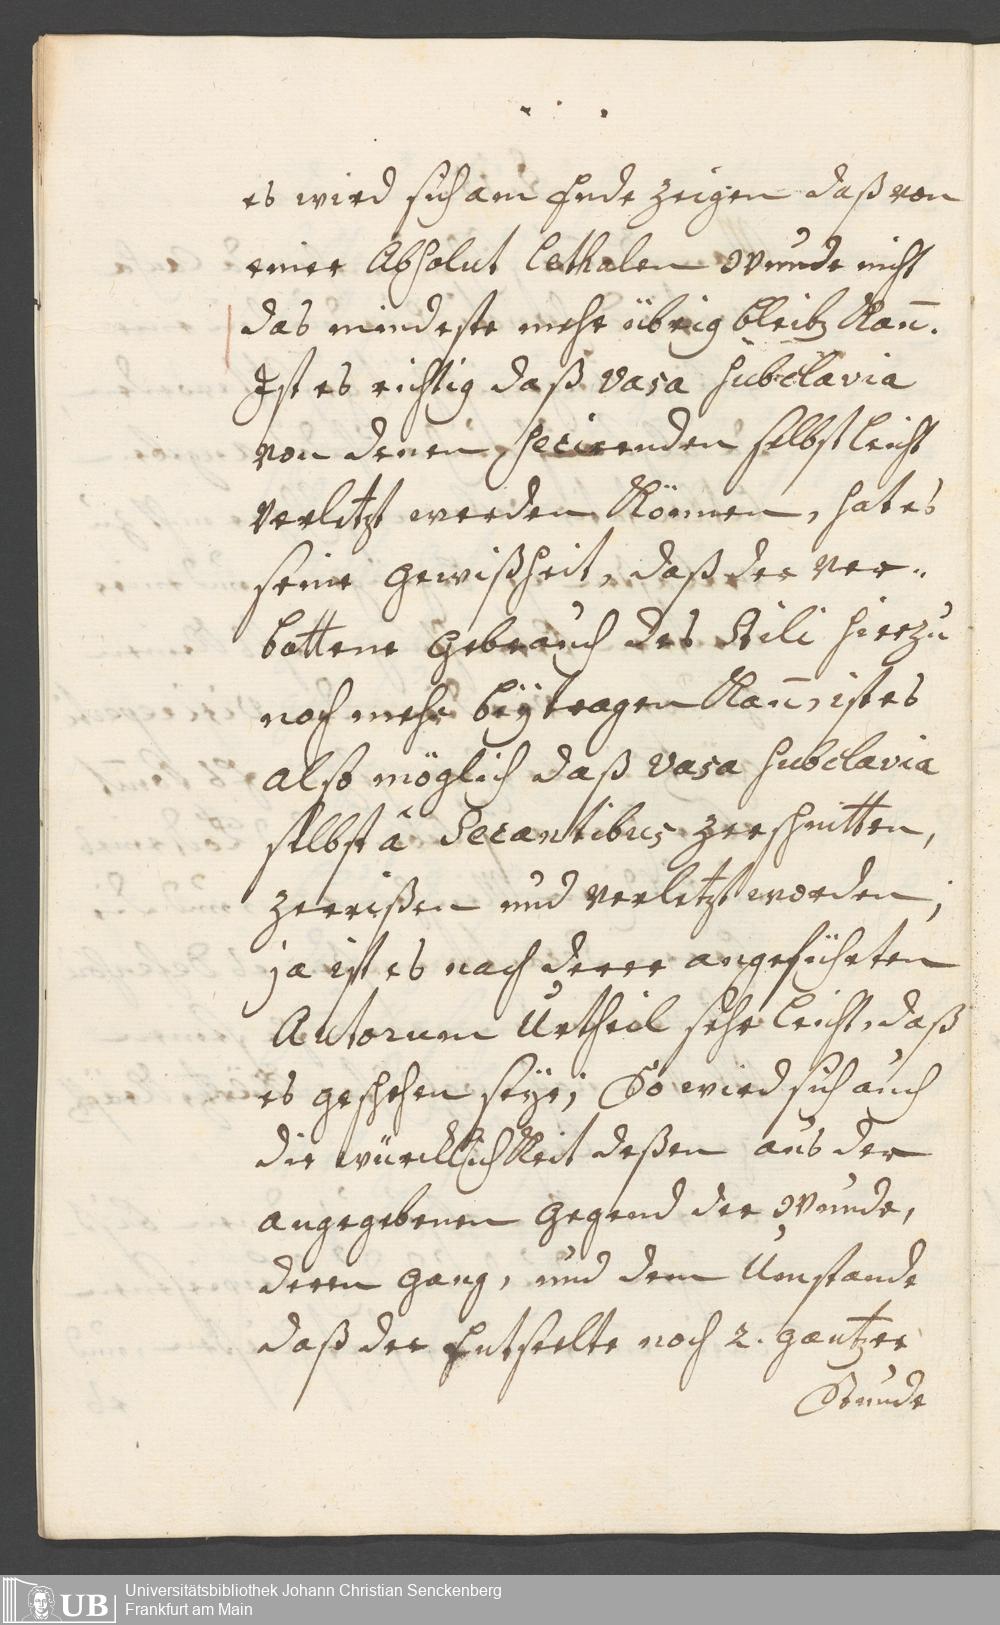 es wird sich am Ende zeigen daß von
einer Absolut lethalen Wunde nicht
das mindeste mehr übrig bleibẽ kan̄.
Ist es richtig daß vasa subclavia
von denen secirenden selbst leicht
verletzt werden können, hat es
seine gewißheit, daß der ver„
bottene gebrauch des Stili hierzu
noch mehr beÿtragen kan̄, ist es
also möglich daß vasa subclavia
selbst â Secantibus zerschnitten,
zerrißen und verletzt worden;
ja ist es nach derer angeführten
Autorum Urtheil sehr leicht, daß
es geschehen seÿe; So wird sich auch
die würcklichkeit deßen aus der
angegebenen gegend der Wunde,
deren gang, und dem Umstande
daß der Entseelte noch 2. gantzer
Stunde
Universitätsbibliothek Johann Christian Senckenberg
Frankfurt am Main
UB